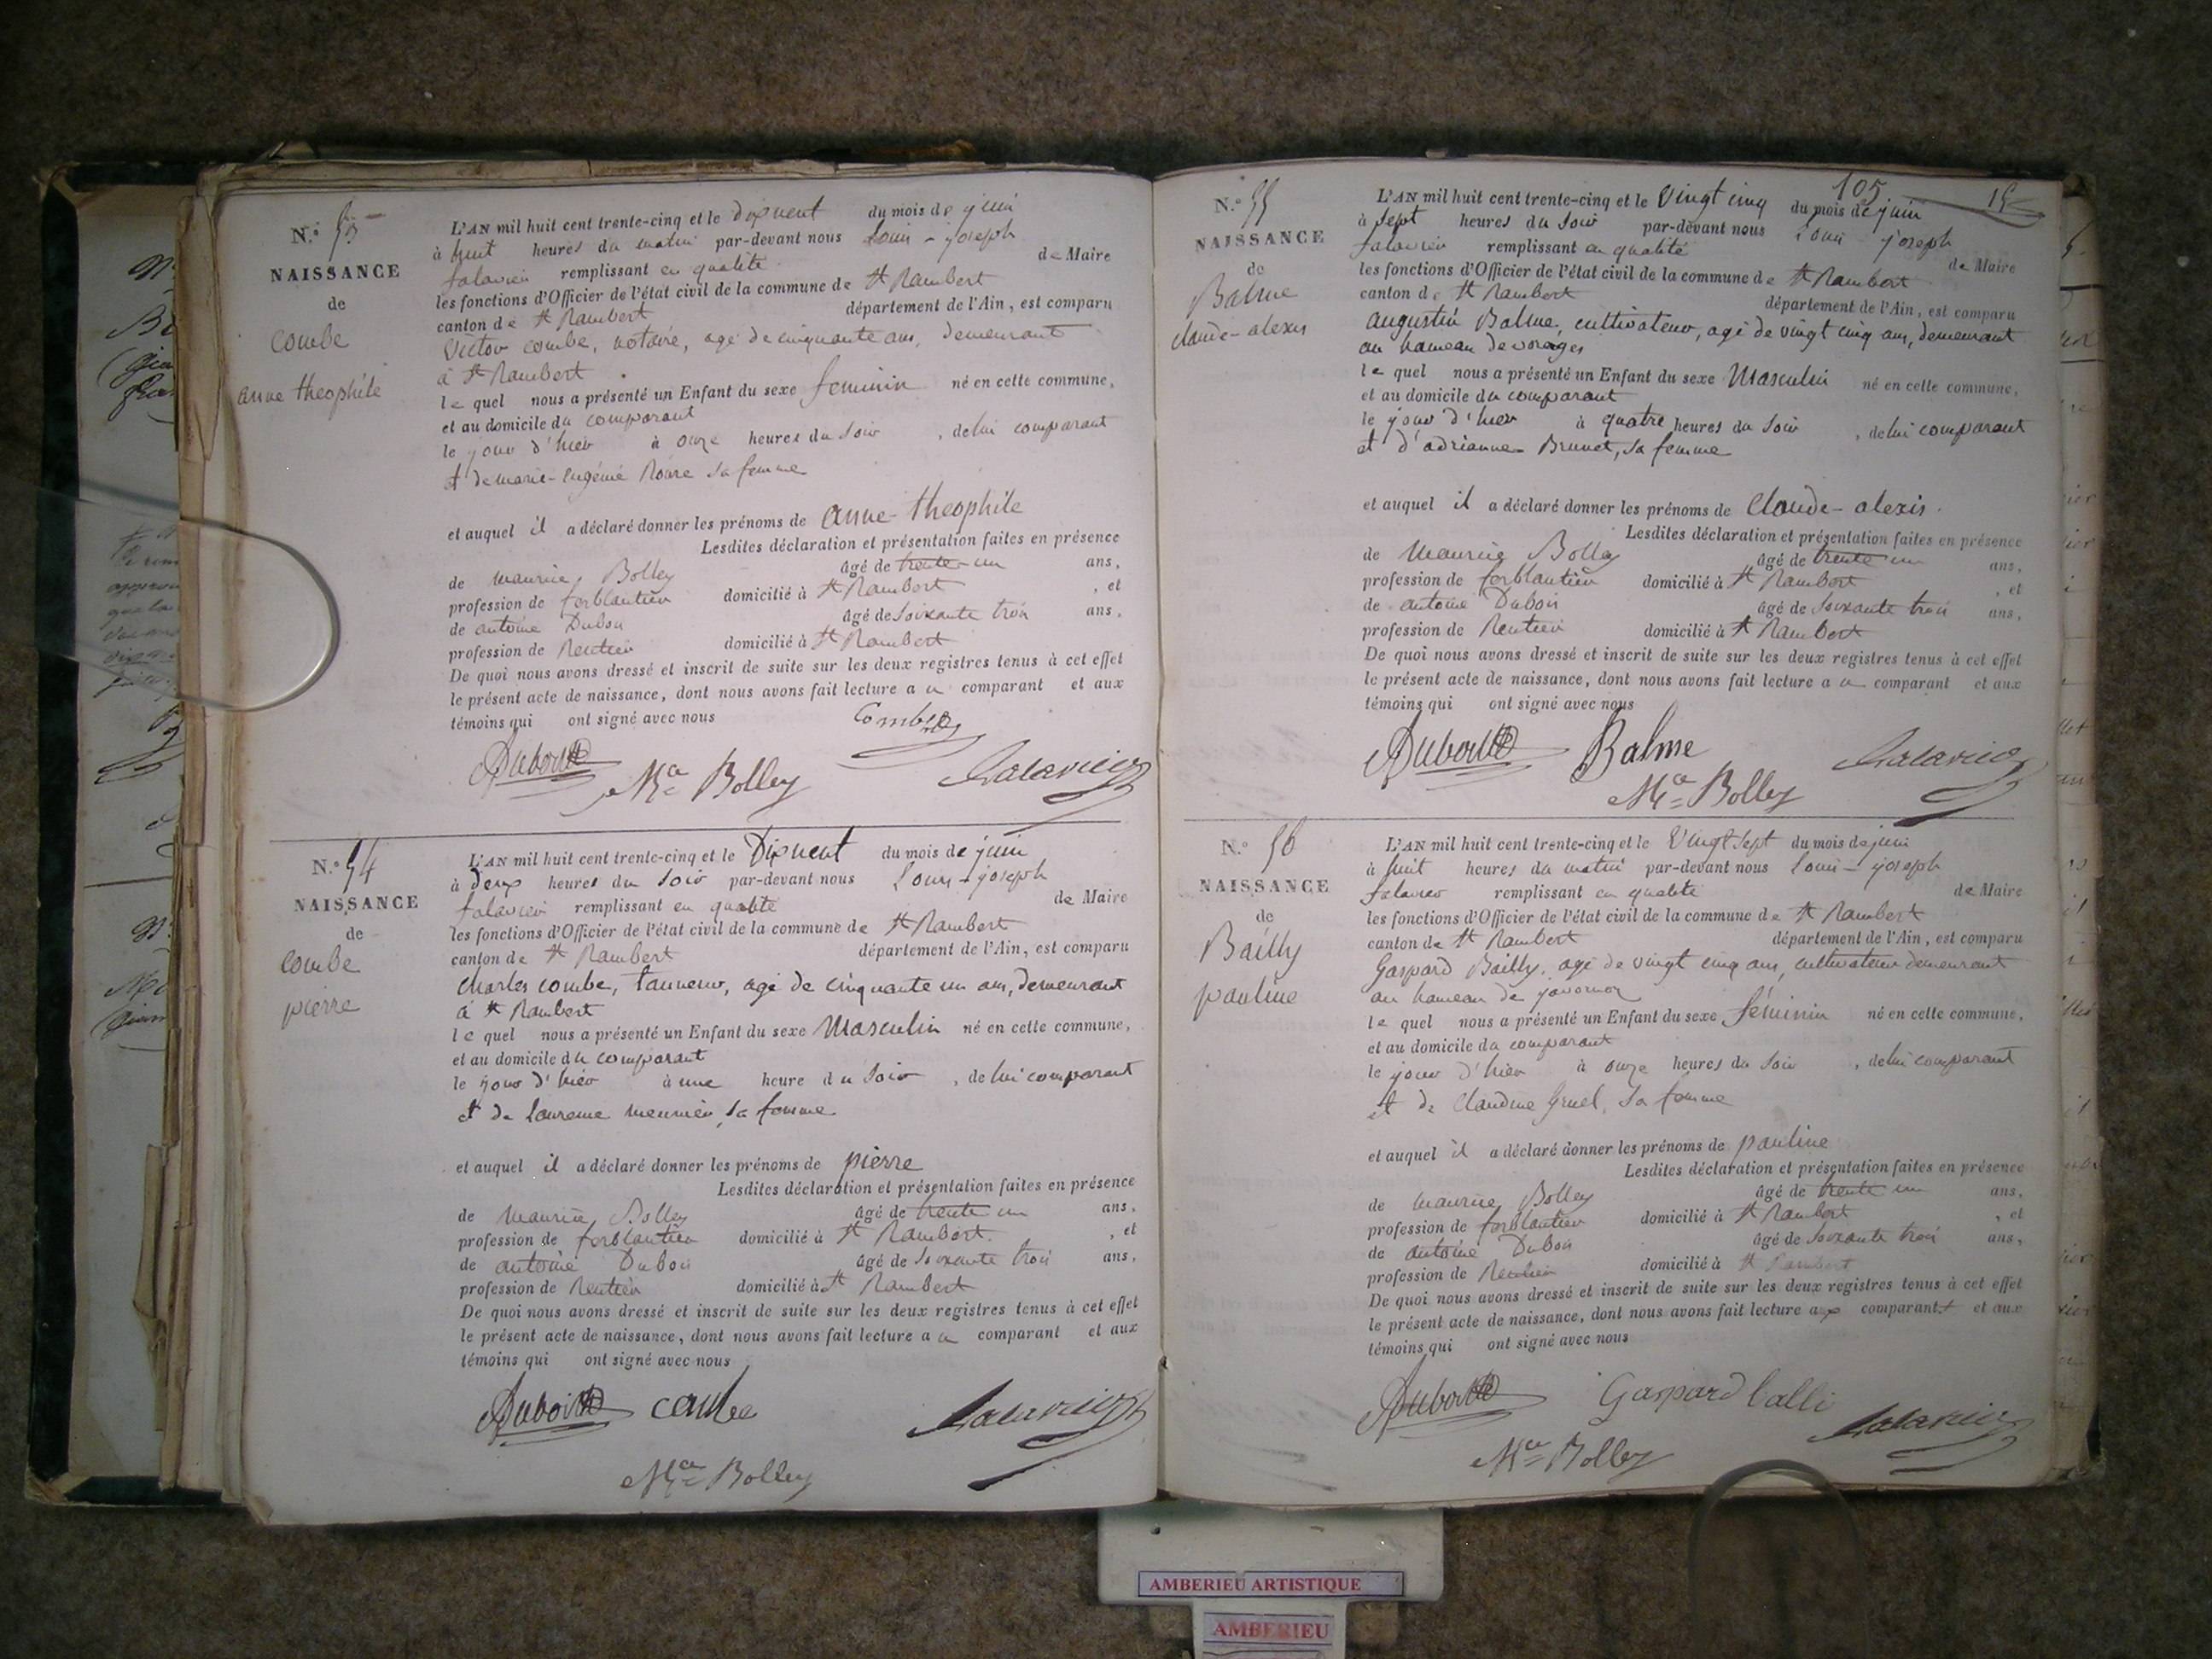 N.o 53
NAISSANCE
de
Combe
anne theophile
L'AN mil huit cent trente-cinq et le Dixneuf du mois de juin
à huit heures du matin par-devant nous Louis-joseph
falavier remplissant en qualité de Maire
les fonctions d'Officier de l'état civil de la commune de St Rambert
canton de St Rambert département de l'Ain, est comparu
Victor Combe, notaire, agé de cinquante ans, demeurant
à St Rambert
le quel nous a présenté un Enfant du sexe feminin né en cette commune,
et au domicile du comparant
le jour d'hier à onze heures du soir, de lui comparant
et de marie-Eugénie sa femme
et auquel il a déclaré donner les prénoms de anne-theophile
Lesdites déclaration et présentation faites en présence
de maurice Bolley âgé de trente un ans,
profession de ferblantier domicilié à St Rambert, et
de antoine Dubois âgé de soixante trois ans,
profession de Rentier domicilié à St Rambert
De quoi nous avons dressé et inscrit de suite sur les deux registres tenus à cet effet
le présent acte de naissance, dont nous avons fait lecture au comparant et aux
témoins qui ont signé avec nous
Combe
Dubois
Mce Bolley
falavier
N.o 54
NAISSANCE
de
Combe
pierre
L'AN mil huit cent trente-cinq et le Dixneuf du mois de juin
à deux heures du soir par-devant nous Louis-joseph
falavier remplissant en qualité de Maire
les fonctions d'Officier de l'état civil de la commune de St Rambert
canton de St Rambert département de l'Ain, est comparu
Charles Combe, tanneur, agé de cinquante un ans, demeurant
à St Rambert
le quel nous a présenté un Enfant du sexe Masculin né en cette commune,
et au domicile du comparant
le jour d'hier à une heure du soir, de lui comparant
et de Laurence meunier, sa femme
et auquel il a déclaré donner les prénoms de pierre
Lesdites déclaration et présentation faites en présence
de maurice Bolley âgé de trente un ans,
profession de ferblantier domicilié à St Rambert, et
de antoine Dubois âgé de soixante trois ans,
profession de Rentier domicilié à St Rambert
De quoi nous avons dressé et inscrit de suite sur les deux registres tenus à cet effet
le présent acte de naissance, dont nous avons fait lecture au comparant et aux
témoins qui ont signé avec nous
Dubois combe falavier
Mce Bolley
105
N.o 55
NAISSANCE
de
Balme
claude-alexis
L'AN mil huit cent trente-cinq et le vingt cinq du mois de juin
à sept heures du soir par-devant nous Louis joseph
falavier remplissant en qualité de Maire
les fonctions d'Officier de l'état civil de la commune de St Rambert
canton de St Rambert département de l'Ain, est comparu
augustin Balme, cultivateur, agé de vingt cinq ans, demeurant
au hameau de vorages
le quel nous a présenté un Enfant du sexe Masculin né en cette commune,
et au domicile du comparant
le jour d'hier à quatre heures du soir, de lui comparant
et d'adrianne Brunet, sa femme
et auquel il a déclaré donner les prénoms de Claude-alexis.
Lesdites déclaration et présentation faites en présence
de maurice Bolley âgé de trente un ans,
profession de ferblantier domicilié à St Rambert, et
de antoine Dubois âgé de soixante trois ans,
profession de Rentier domicilié à St Rambert
De quoi nous avons dressé et inscrit de suite sur les deux registres tenus à cet effet
le présent acte de naissance, dont nous avons fait lecture au comparant et aux
témoins qui ont signé avec nous
Dubois Balme falavier
Mce Bolley
N.o 56
NAISSANCE
de
Bailly
pauline
L'AN mil huit cent trente-cinq et le vingt sept du mois de juin
à huit heures du matin par-devant nous Louis-joseph
falavier remplissant en qualité de Maire
les fonctions d'Officier de l'état civil de la commune de St Rambert
canton de St Rambert département de l'Ain, est comparu
Gaspard Bailly, agé de vingt cinq ans, cultivateur demeurant
au hameau de javornoz
le quel nous a présenté un Enfant du sexe féminin né en cette commune,
et au domicile du comparant
le jour d'hier à onze heures du soir, de lui comparant
et de Claudine Gruel, sa femme
et auquel il a déclaré donner les prénoms de pauline
Lesdites déclaration et présentation faites en présence
de maurice Bolley âgé de trente un ans,
profession de ferblantier domicilié à St Rambert, et
de antoine Dubois âgé de soixante trois ans,
profession de Rentier domicilié à St Rambert
De quoi nous avons dressé et inscrit de suite sur les deux registres tenus à cet effet
le présent acte de naissance, dont nous avons fait lecture aux comparants et aux
témoins qui ont signé avec nous
Dubois Gaspard balli falavier
Mce Bolley
AMBERIEU ARTISTIQUE
AMBERIEU